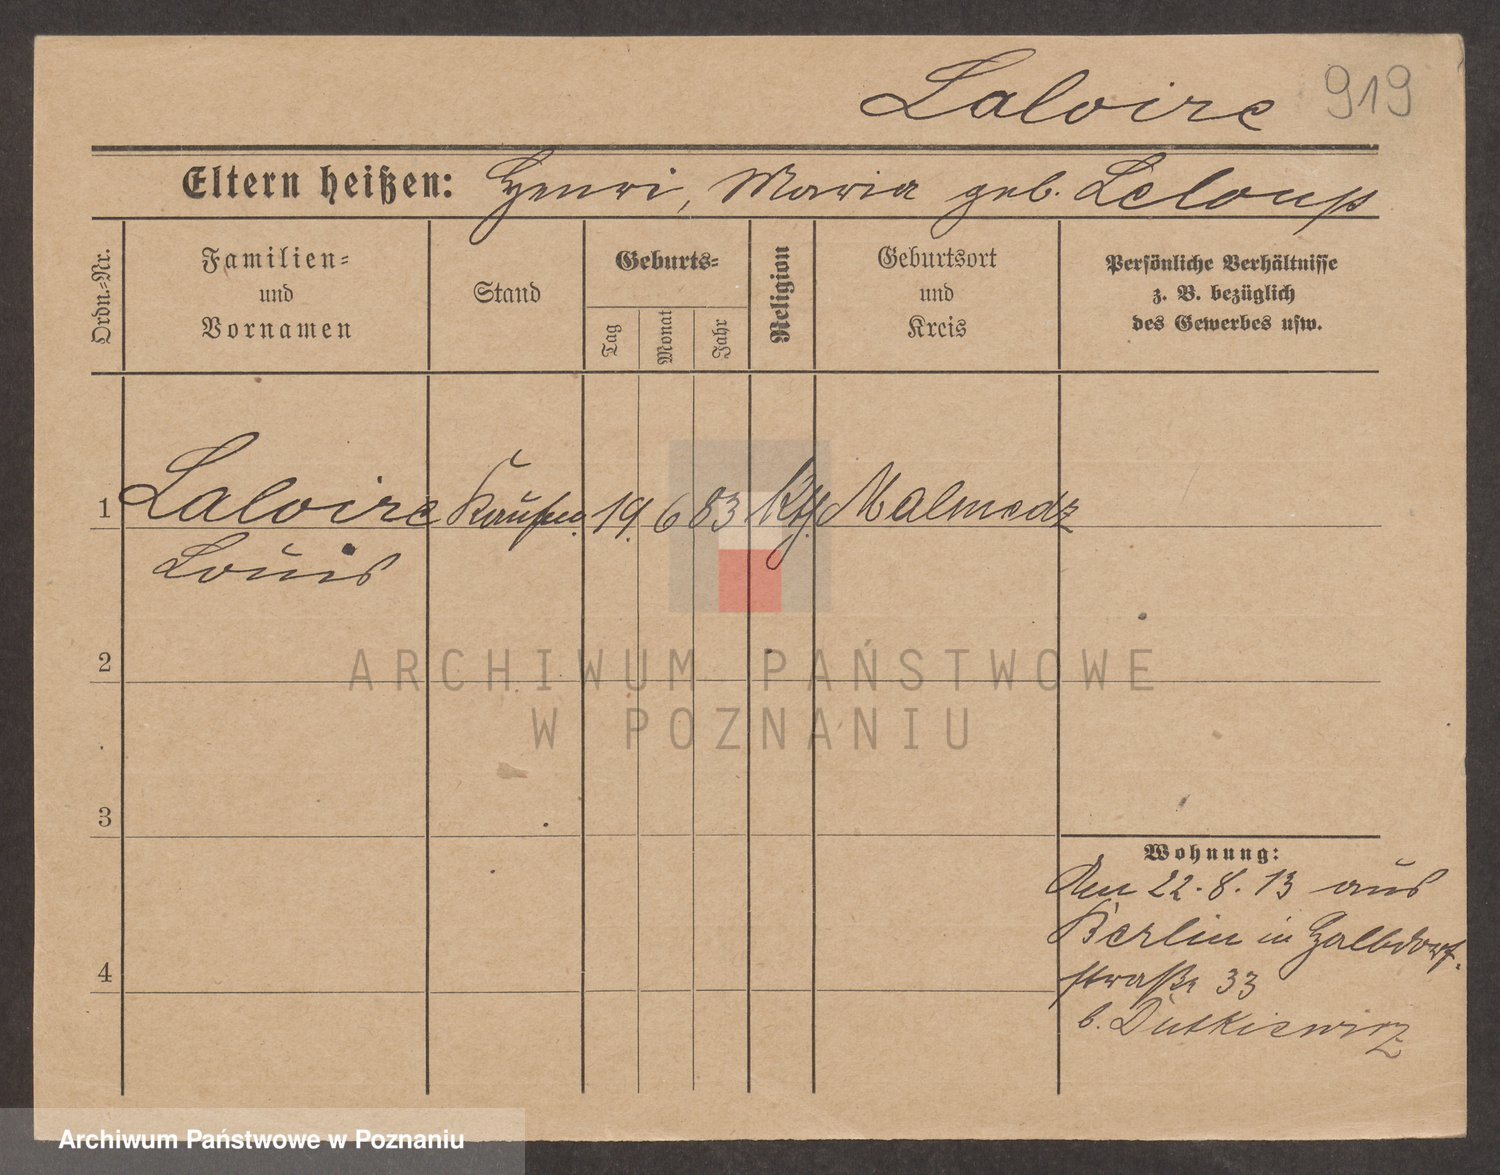 Laloire 919
Eltern heißen: Henri, Maria geb. Leloup
Ordn.-Nr.
Familien-
und
Vornamen
Stand
Geburts-
Tag
Monat
Jahr
Religion
Geburtsort
und
Kreis
Persönliche Verhältnisse
z. B. bezüglich
des Gewerbes usw.
1 Laloire Kaufm. 19. 6 83 Kth. Malmedz
Louis
2
3
4
Wohnung:
Am 22.8.13 aus
Berlin in Halbdorf-
straße 33
b. Dutkiewicz
ARCHIWUM PAŃSTWOWE
W POZNANIU
Archiwum Państwowe w Poznaniu